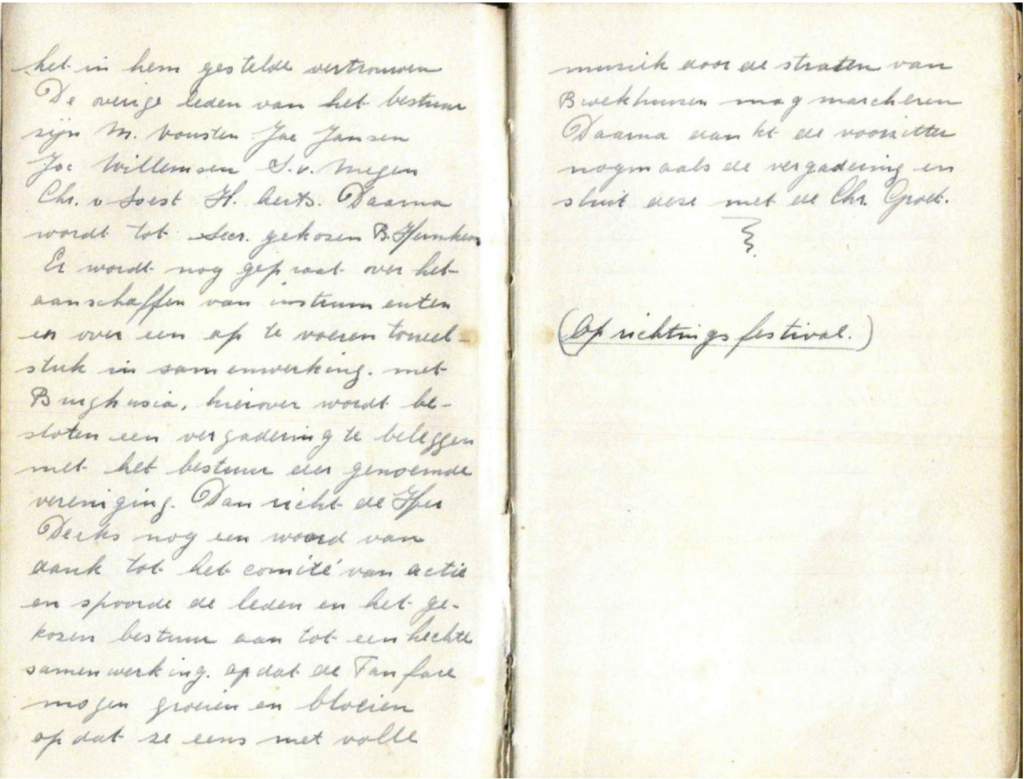 het in hem gestelde vertrouwen
De overige leden van het bestuur
zijn M. Vousten Jac Jansen
Jac Willemsen S. v. Megen
Chr. v Soest H. Aerts. Daarna
wordt tot Secr. gekozen B.
Er wordt nog gepraat over het
aanschaffen van instrumenten
en over een op te voeren toneel-
stuk in samenwerking. met
Burghusia, hierover wordt be-
sloten een vergadering te beleggen
met het bestuur der genoemde
vereniging. Dan richt de Heer
Derks nog een woord van
dank tot het comité van actie
en spoorde de leden en het ge-
kozen bestuur aan tot een hechte
samenwerking. opdat de Fanfare
mogen groeien en bloeien
opdat ze eens met volle
muziek door de straten van
Broekhuizen mag marcheren
Daarna dankt de voorzitter
nogmaals de vergadering en
sluit deze met de Chr. Groet.
(Oprichtingsfestival.)